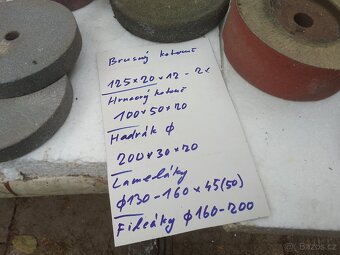 Brusný kotouč
125×20×12 - 2x
Hrncový kotouč
100×50×20
Hadrák ϕ
200×30×20
Lameláky
ϕ130-160×45(50)
Filcáky ϕ160-200
Bazos.cz